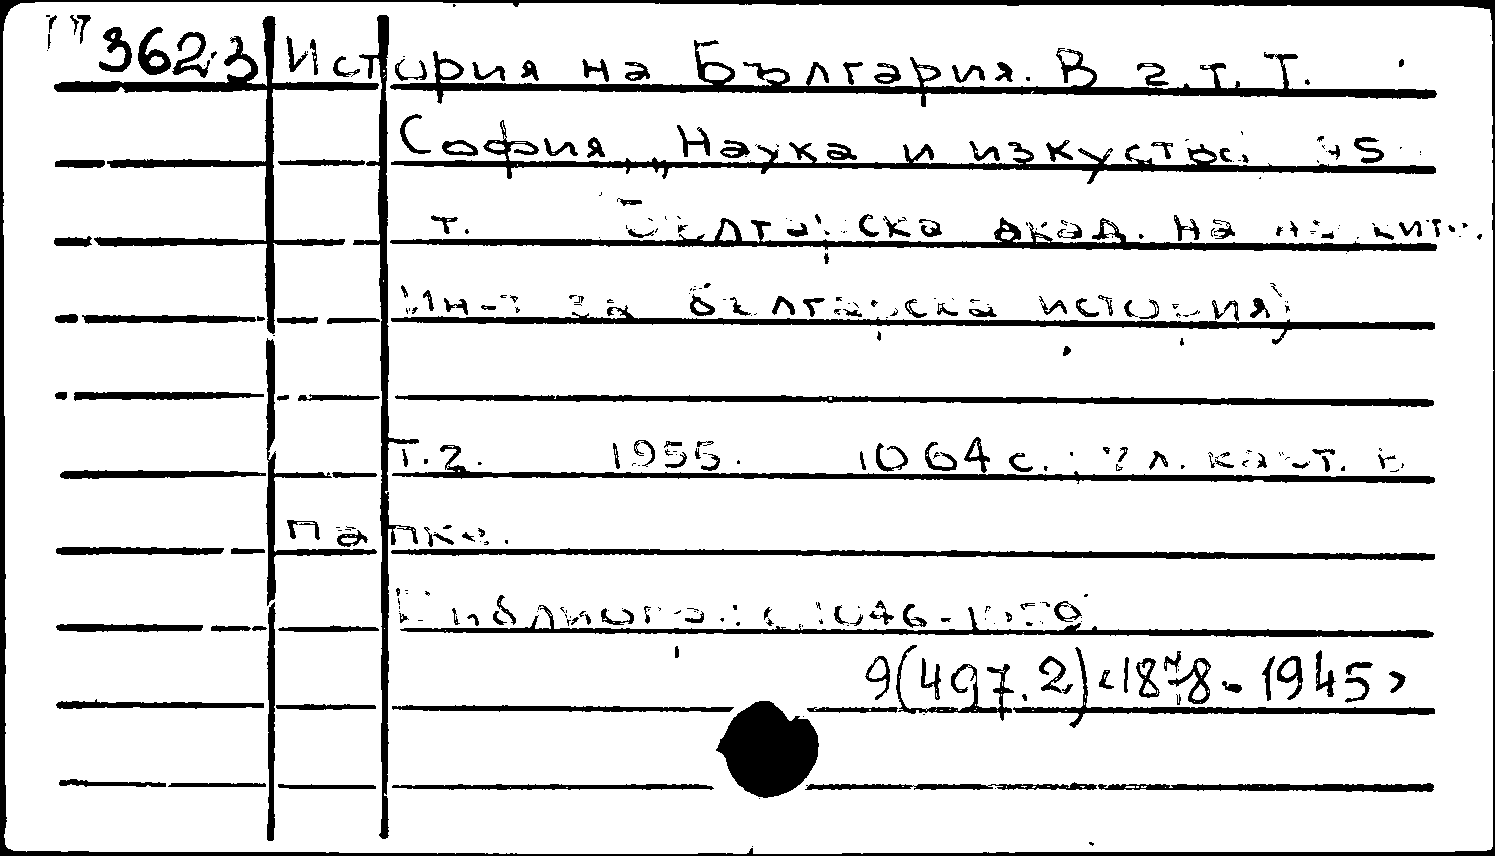 П 3623 История на България. В 2. т. Т.
София, Наука и изкуство 195
т. Българска акад. на науките.
Ин-т за българска история)
Т.2. 1955. 1064 с.; 7 л. карт. в
папке.
Библиогр.: с. 1046-1059.
9(497.2)<1878-1945>